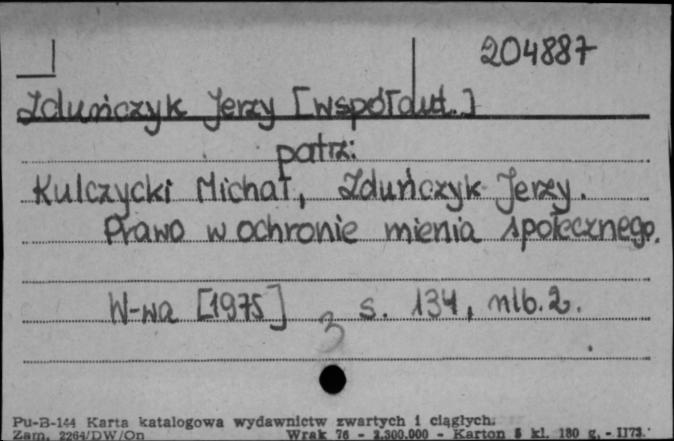 204887
Zduńczyk Jerzy [współaut.]
patrz:
Kulczycki Michał, Zduńczyk Jerzy.
Prawo w ochronie mienia społecznego.
W-wa [1975] s. 134, nlb. 2.
3
Pu-B-144 Karta katalogowa wydawnictw zwartych i ciągłych.
Zam. 2264/DW/On Wrak 76 - 2.300.000 - Karton 5 kl. 180 g. - II73.